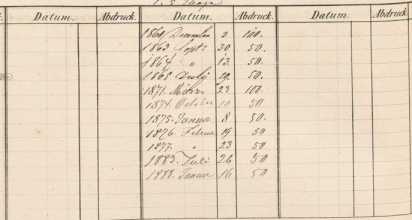 Datum. Abdruck. Datum. Abdruck. Datum. Abdruck.
2 100.
1863 Sept 30 50.
1864 " 12 50.
1868 July 50.
1871. März 23 100
1874 October 10 50
1875. Januar 8 50.
1876 Februar 19 50
1877. " 23 50
1883. Juli 26 50
1888. Januar 16 50